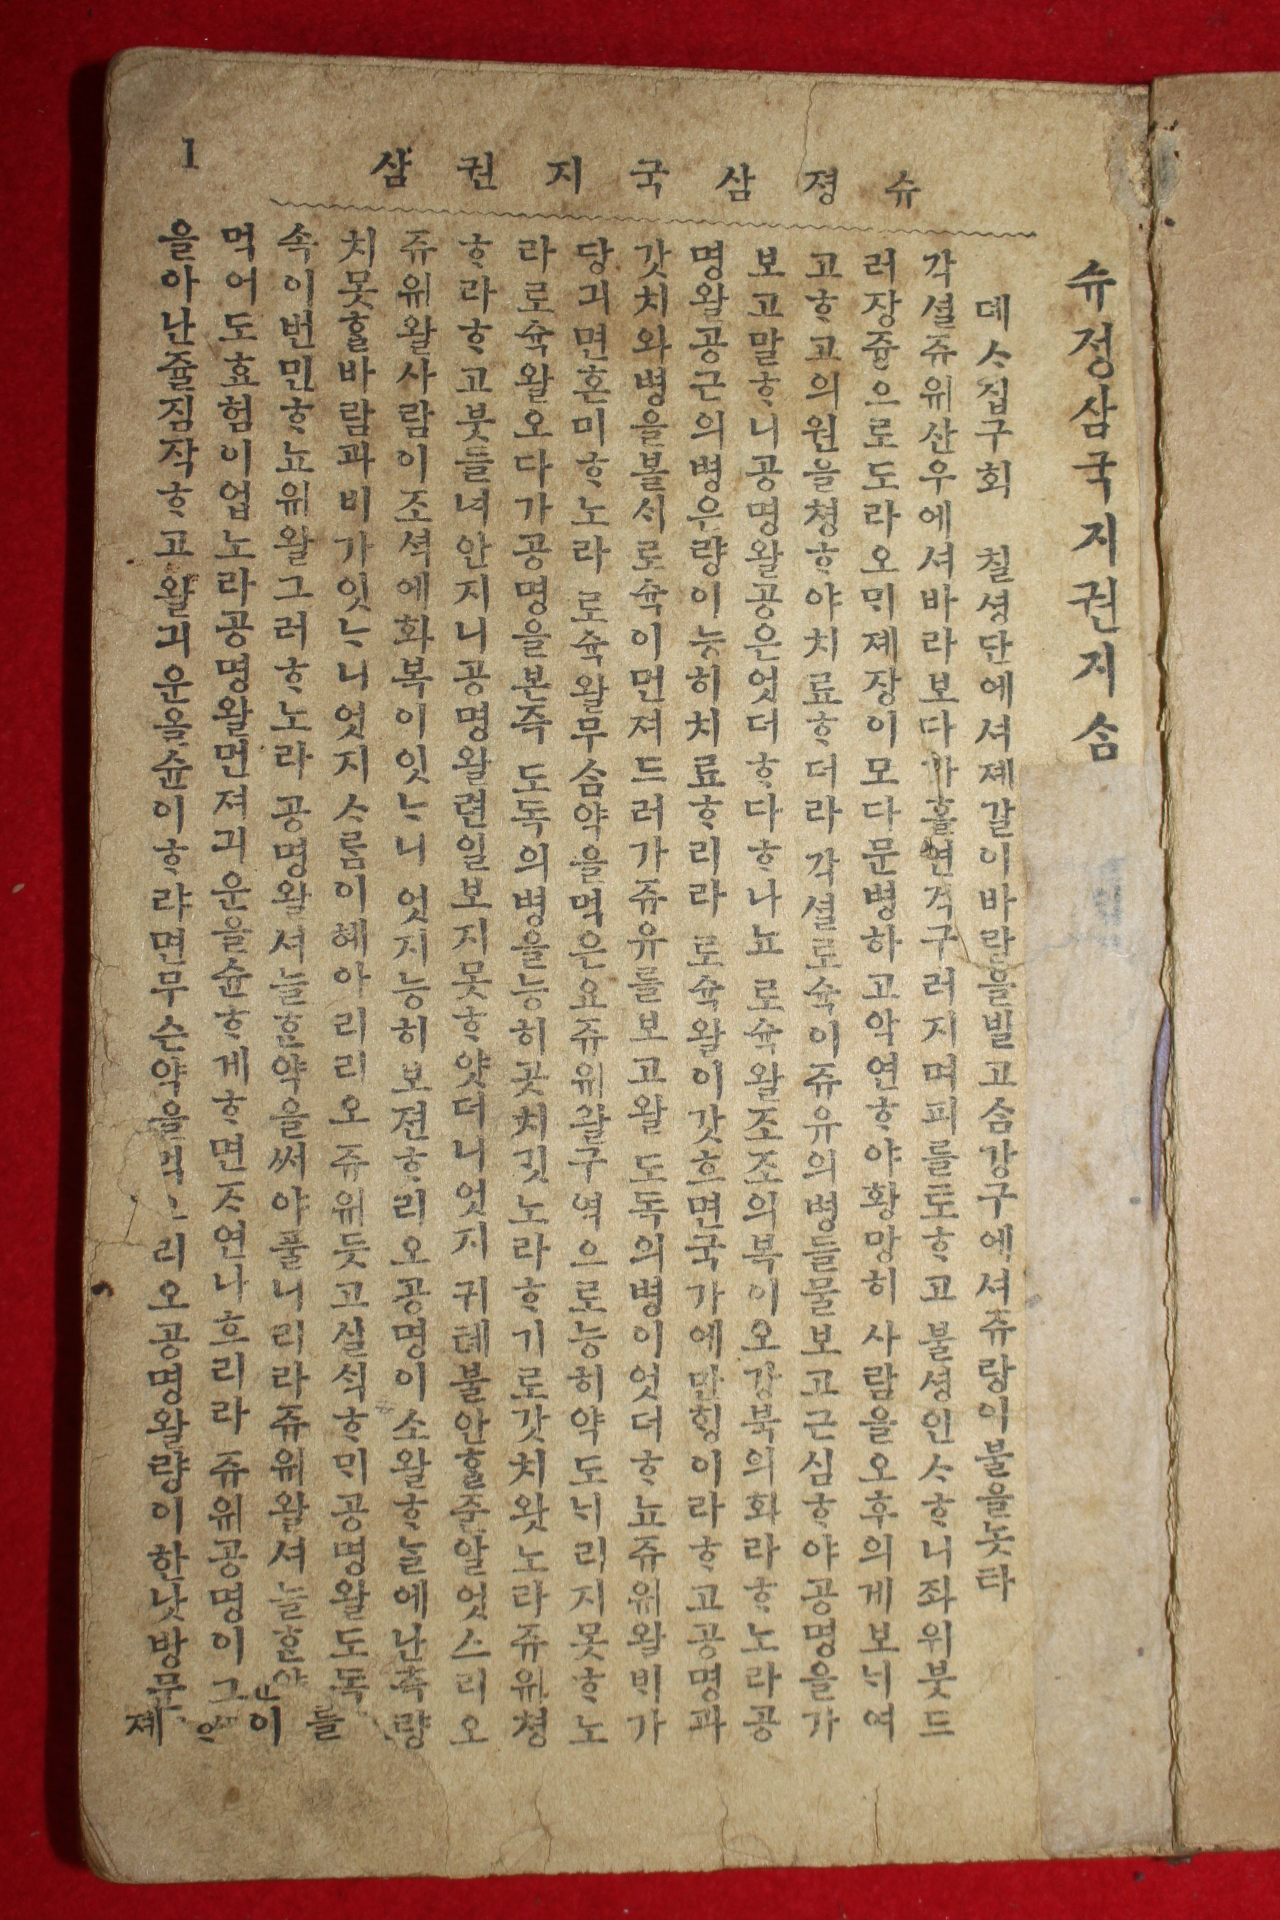 1
슈졍삼국지권삼
슈정삼국지권지솜
뎨ᄉ십구회 칠셩단에셔졔갈이바람을빌고솜강구에셔쥬랑이불을놋타
각셜쥬위산우에셔바라보다가홀연격구러지며피를토ᄒ고 불셩인ᄉᄒ니좌위붓드
러장즁으로도라오ᄆᆡ졔장이모다문병하고악연ᄒ야황망히 사람을오후의게보ᄂᆡ여
고ᄒ고의원을쳥ᄒ야치료ᄒ더라 각셜로슉이쥬유의병들물보고근심ᄒ야공명을가
보고말ᄒ니공명왈공은엇더ᄒ다ᄒ나뇨 로슉왈조조의복이오강북의화라ᄒ노라공
명왈공근의병은량이능히치료ᄒ리라 로슉왈이갓흐면국가에만ᄒᆡᆼ이라ᄒ고공명과
갓치와병을볼ᄉᆡ로슉이먼져드러가쥬유를보고왈 도독의병이엇더ᄒ뇨쥬위왈ᄇᆡ가
당긔면혼미ᄒ노라 로슉왈무숨약을먹은요쥬위왈구역으로능히약도ᄂᆡ리지못ᄒ노
라로슉왈오다가공명을본즉 도독의병을능히곳치깃노라ᄒ기로갓치왓노라쥬위쳥
ᄒ라ᄒ고붓들녀안지니공명왈련일보지못ᄒ얏더니엇지 귀톄불안ᄒᆞᆯ줄알엇스리오
쥬위왈사람이조셕에화복이잇ᄂ니 엇지능히보젼ᄒ리오공명이소왈ᄒᄂᆞᆯ에난측량
치못ᄒᆞᆯ바람과비가잇ᄂ니엇지ᄉᄅᆞᆷ이헤아리리오 쥬위듯고실ᄉᆡᆨᄒᄆᆡ공명왈도독
속이번민ᄒ뇨위왈그러ᄒ노라 공명왈셔늘ᄒᆞᆫ약을써야풀니리라쥬위왈셔늘ᄒᆞᆫ약
먹어도효험이업노라공명왈먼져긔운을슌ᄒ게ᄒ면ᄌ연나흐리라 쥬위공명이그
을아난줄짐작ᄒ고왈긔운을슌이ᄒ랴면무슨약을 리오공명왈량이한낫방문
들
이
졔